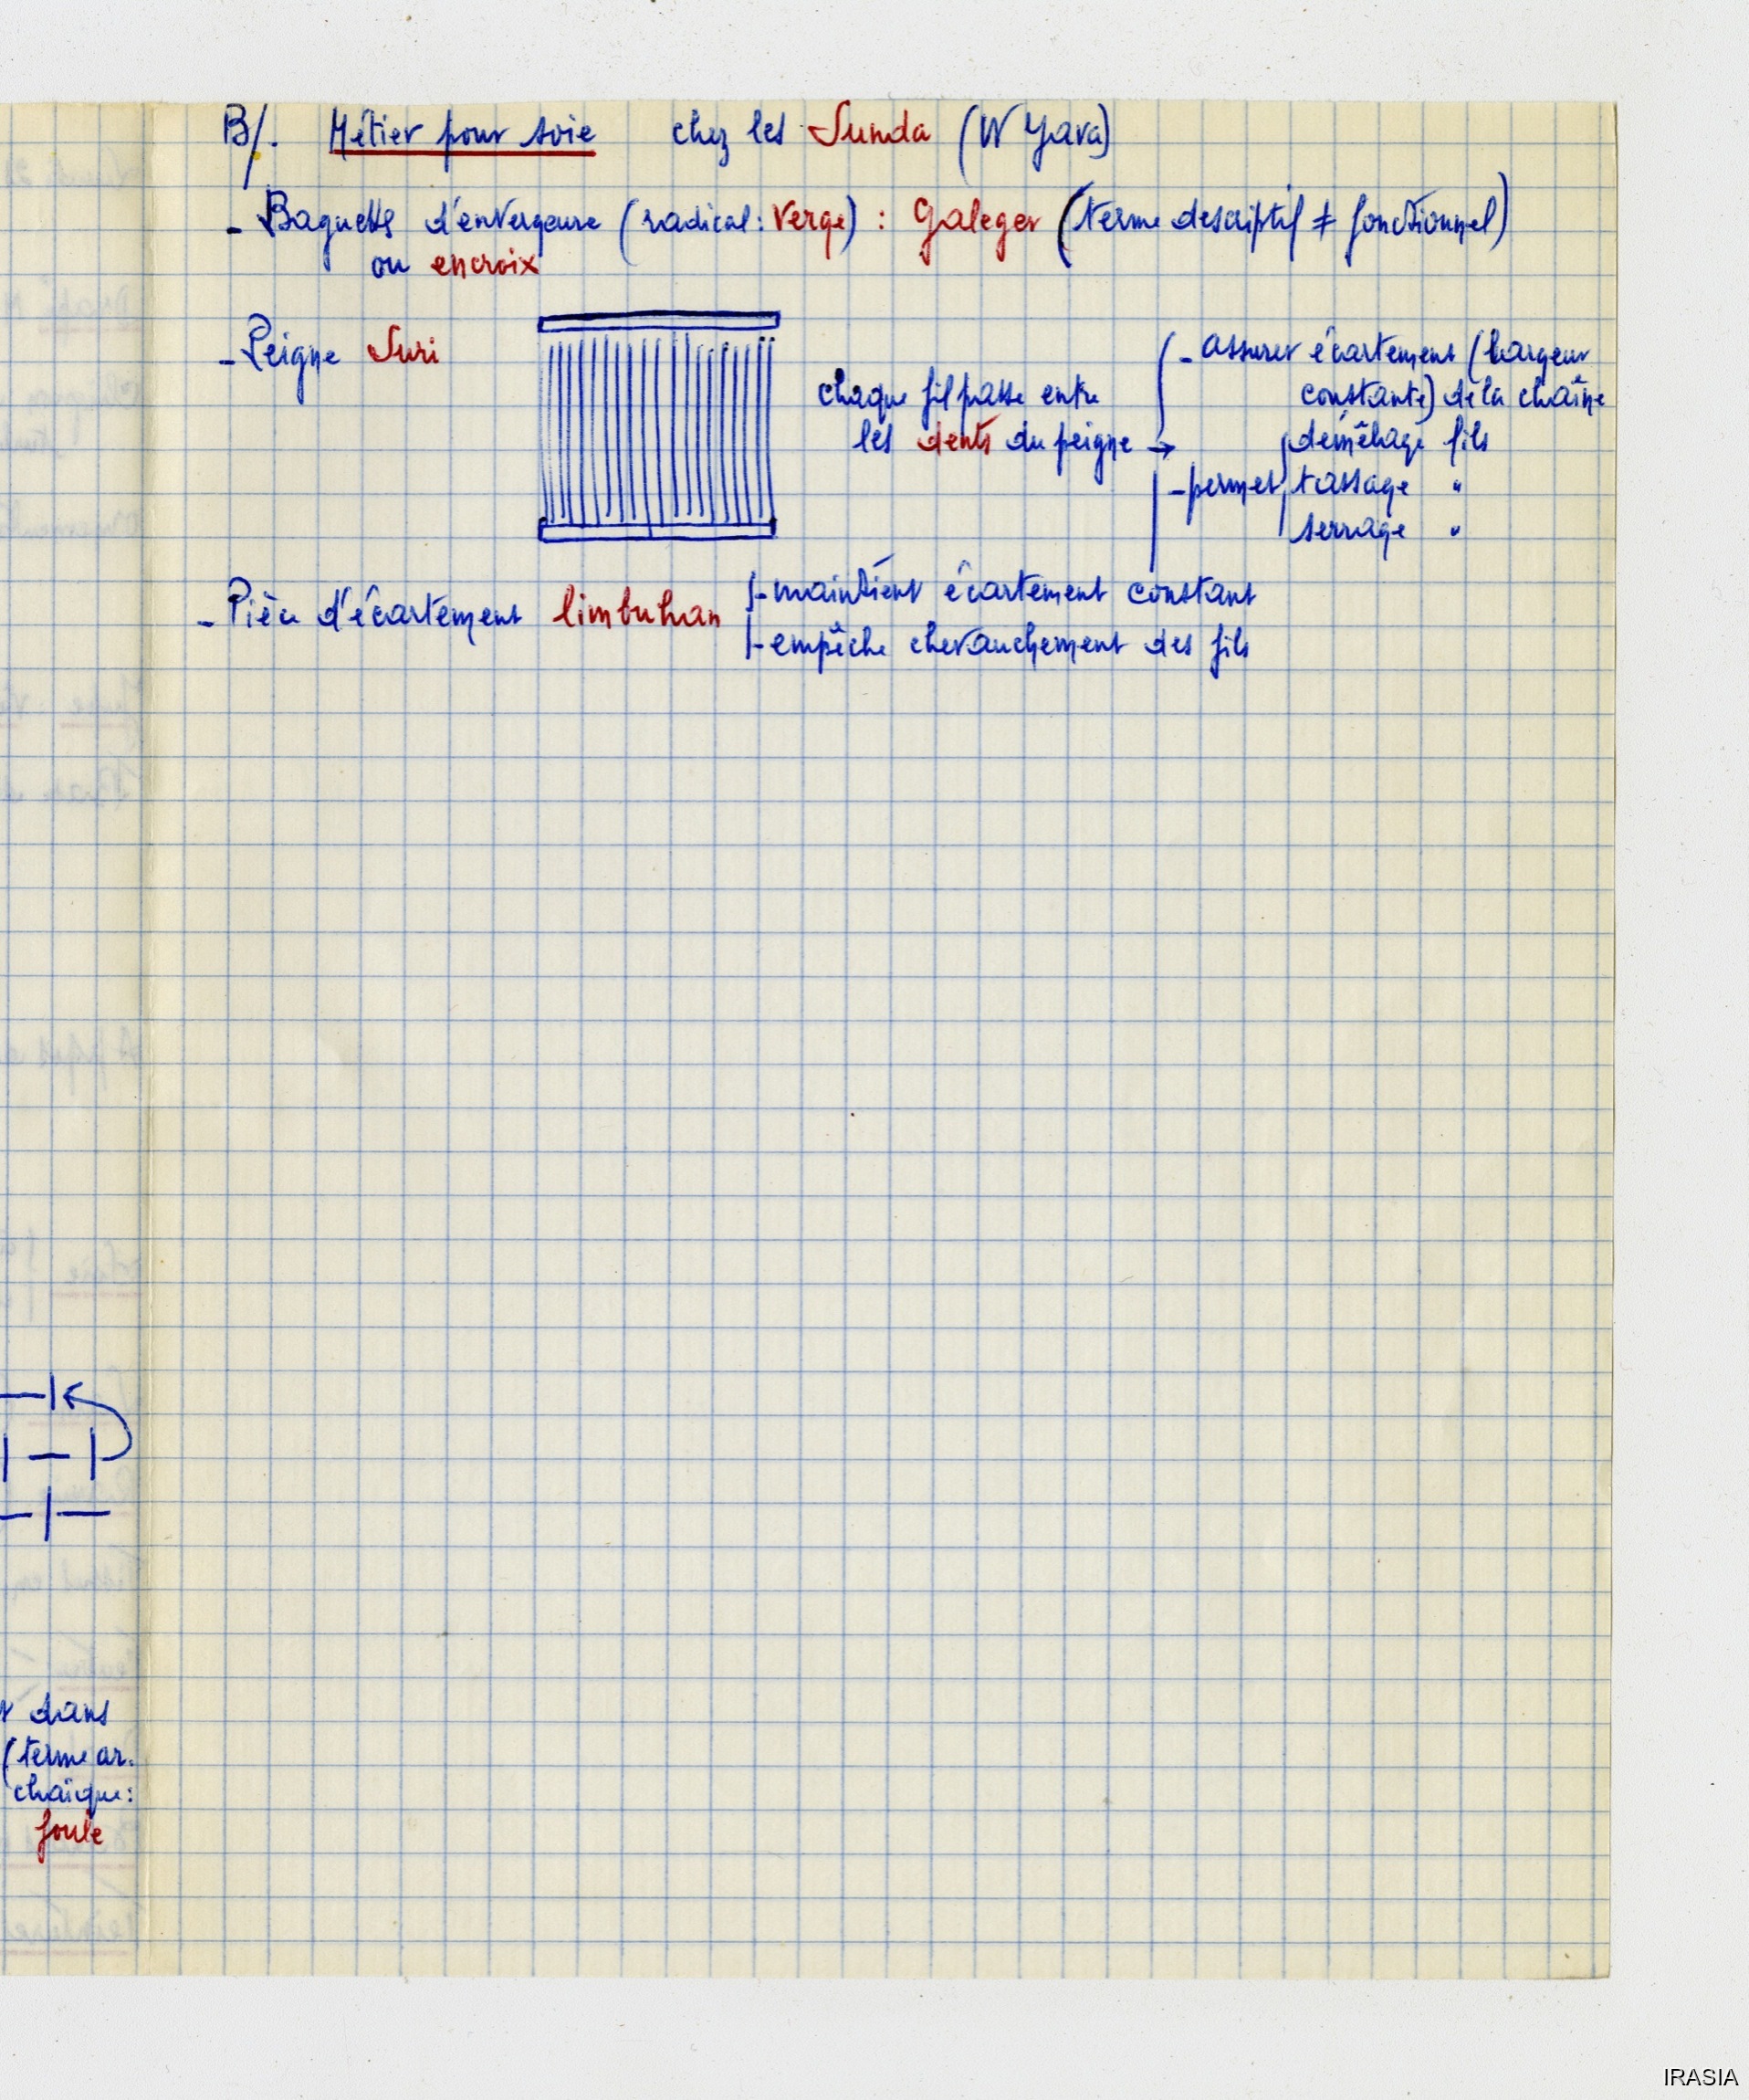 B/. Métier pour soie chez les Sunda (W Java)
- Baguettes d'envergeure (radical: Verge) : Galeger (terme descriptif ≠ fonctionnel)
ou encroix
- Peigne Suri
chaque fil passe entre
les dents du peigne →
- assurer écartement (largeur
constante) de la chaîne
- permet démêlage fils
tassage "
serrage "
- Pièce d'écartement limbuhan
- maintient écartement constant
- empêche chevauchement des fils
dans
(terme ar.
chaïque:
foule
IRASIA